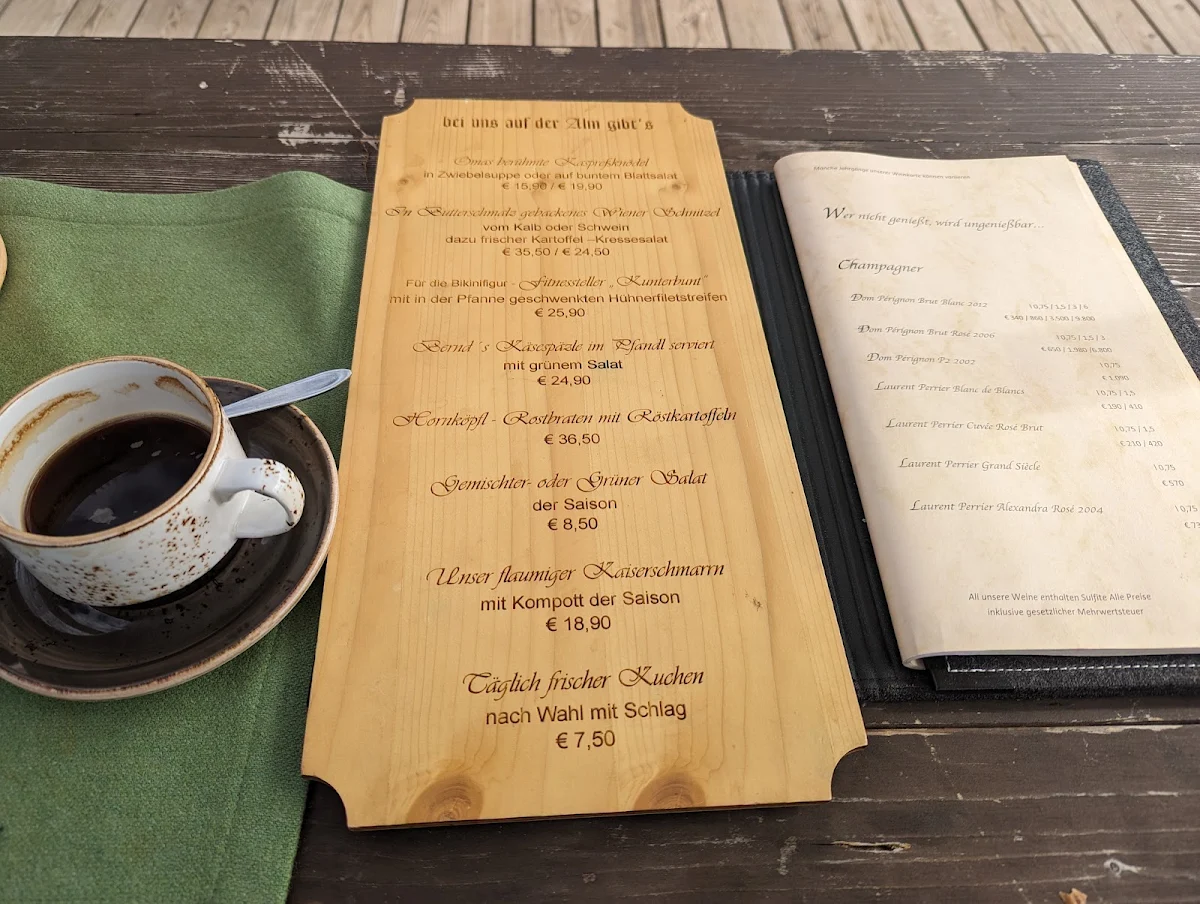 bei uns auf der Alm gibt's
Omas berühmte Kaspreßknödel
in Zwiebelsuppe oder auf buntem Blattsalat
€ 15,90 / € 19,90
In Butterschmalz gebackenes Wiener Schnitzel
vom Kalb oder Schwein
dazu frischer Kartoffel –Kressesalat
€ 35,50 / € 24,50
Für die Bikinifigur - Fitnessteller „Kunterbunt"
mit in der Pfanne geschwenkten Hühnerfiletstreifen
€ 25,90
Bernd´s Käsespäzle im Pfandl serviert
mit grünem Salat
€ 24,90
Hornköpfl - Rostbraten mit Röstkartoffeln
€ 36,50
Gemischter- oder Grüner Salat
der Saison
€ 8,50
Unser flaumiger Kaiserschmarrn
mit Kompott der Saison
€ 18,90
Täglich frischer Kuchen
nach Wahl mit Schlag
€ 7,50
Manche Jahrgänge unserer Weinkarte können variieren
Wer nicht genießt, wird ungenießbar...
Champagner
Dom Pérignon Brut Blanc 2012 l 0,75 / 1,5 / 3 / 6
€ 340 / 860 / 3.500 / 9.800
Dom Pérignon Brut Rosé 2006 l 0,75 / 1,5 / 3
€ 650 / 1.980 /6.800
Dom Pérignon P2 2002 l 0,75
€ 1.090
Laurent Perrier Blanc de Blancs l 0,75 / 1,5
€ 190 / 410
Laurent Perrier Cuvée Rosé Brut l 0,75 / 1,5
€ 210 / 420
Laurent Perrier Grand Siècle l 0,75
€ 570
Laurent Perrier Alexandra Rosé 2004 l 0,75
All unsere Weine enthalten Sulfite Alle Preise
inklusive gesetzlicher Mehrwertsteuer